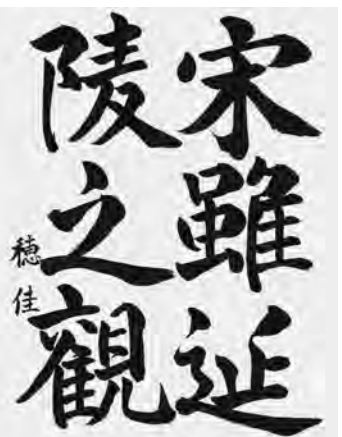 宋雖延
陵之觀
穂佳